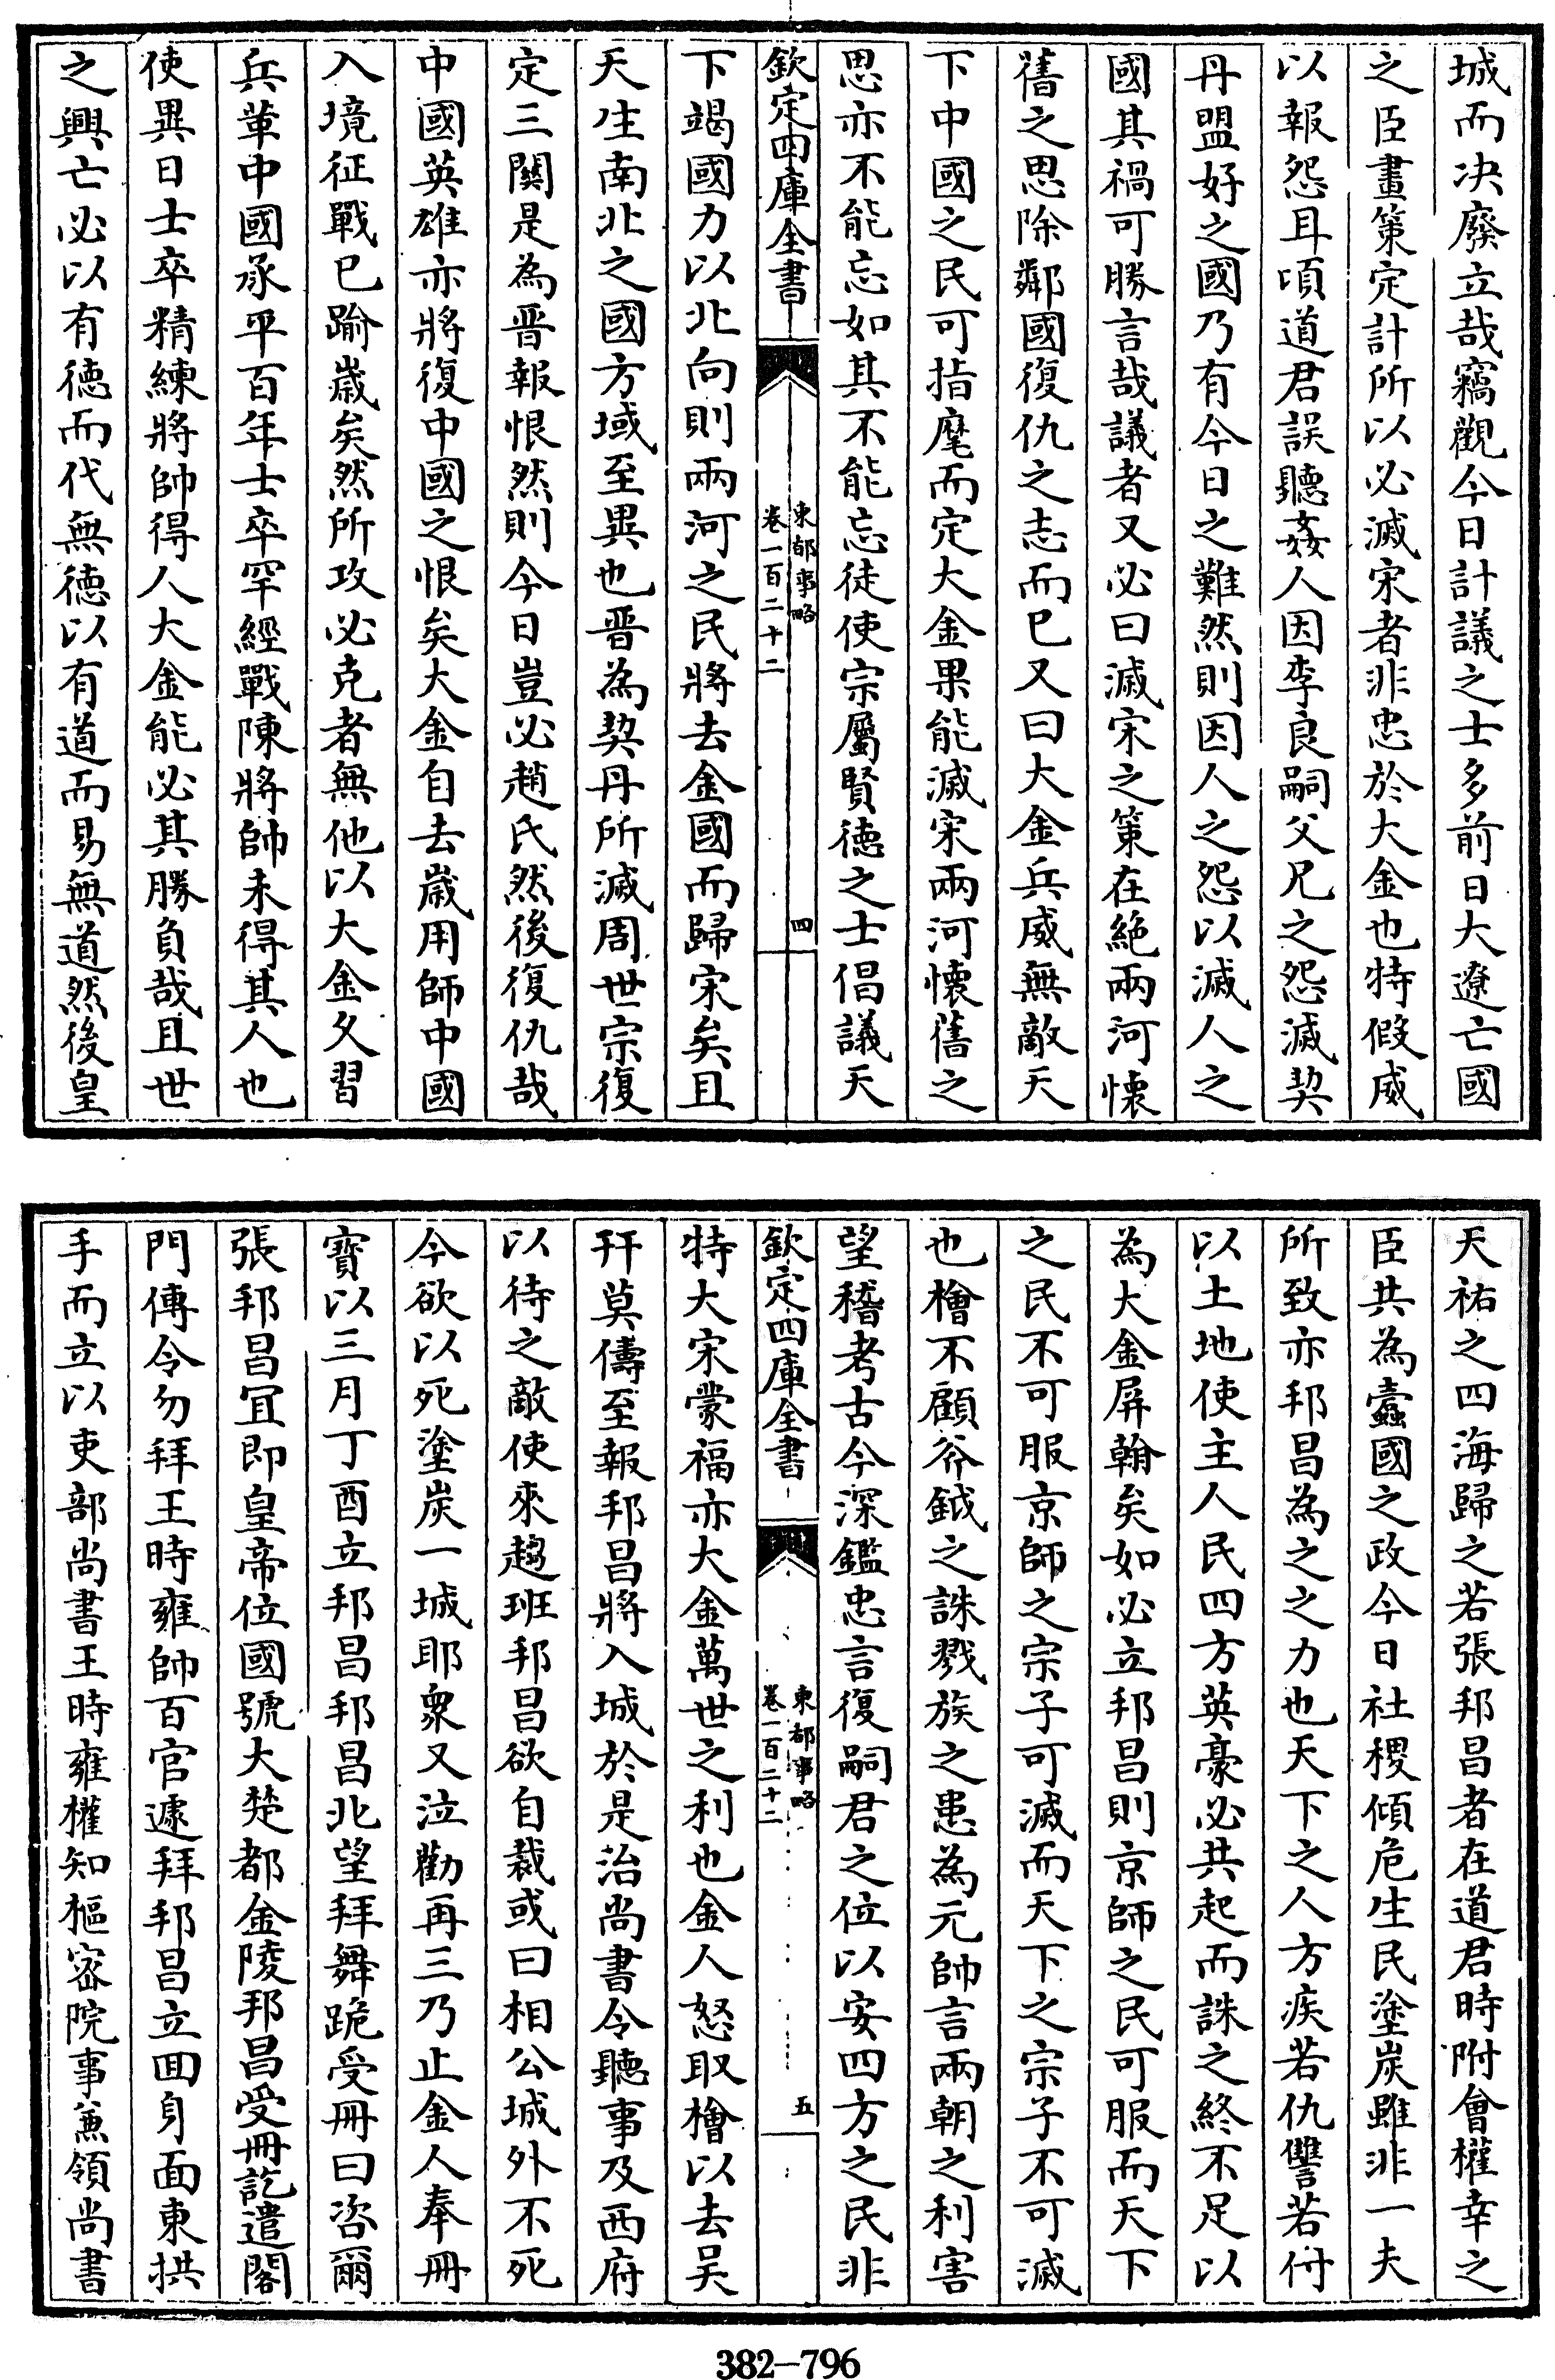 城而决廢立哉竊觀今日計議之士多前日大遼亡國
之臣畫策定計所以必滅宋者非忠於大金也特假威
以報怨耳頃道君誤聽姦人因李良嗣父兄之怨滅契
丹盟好之國乃有今日之難然則因人之怨以滅人之
國其禍可勝言哉議者又必曰滅宋之策在絶兩河懷
舊之思除鄰國復仇之志而已又曰大金兵威無敵天
下中國之民可指麾而定大金果能滅宋兩河懷舊之
思亦不能忘如其不能忘徒使宗屬賢徳之士倡議天
欽定四庫全書
東都事略
卷一百二十二
四
下竭國力以北向則兩河之民將去金國而歸宋矣且
天生南北之國方域至異也晋為契丹所滅周世宗復
定三關是為晋報恨然則今日豈必趙氏然後復仇哉
中國英雄亦將復中國之恨矣大金自去歲用師中國
入境征戰已踰歲矣然所攻必克者無他以大金久習
兵革中國承平百年士卒罕經戰陳將帥未得其人也
使異日士卒精練將帥得人大金能必其勝負哉且世
之興亡必以有徳而代無徳以有道而易無道然後皇
天祐之四海歸之若張邦昌者在道君時附會權幸之
臣共為蠹國之政今日社稷傾危生民塗炭雖非一夫
所致亦邦昌為之之力也天下之人方疾若仇讐若付
以土地使主人民四方英豪必共起而誅之終不足以
為大金屏翰矣如必立邦昌則京師之民可服而天下
之民不可服京師之宗子可滅而天下之宗子不可滅
也檜不顧斧鉞之誅戮族之患為元帥言兩朝之利害
望稽考古今深鑑忠言復嗣君之位以安四方之民非
欽定四庫全書
東都事略
卷一百二十二
五
特大宋蒙福亦大金萬世之利也金人怒取檜以去吴
幵莫儔至報邦昌將入城於是治尚書令聽事及西府
以待之敵使來趨班邦昌欲自裁或曰相公城外不死
今欲以死塗炭一城耶衆又泣勸再三乃止金人奉冊
寳以三月丁酉立邦昌邦昌北望拜舞跪受冊曰咨爾
張邦昌宜即皇帝位國號大楚都金陵邦昌受冊訖遣閤
門傳令勿拜王時雍帥百官遽拜邦昌立回身面東拱
手而立以吏部尚書王時雍權知樞宻院事兼領尚書
382-796